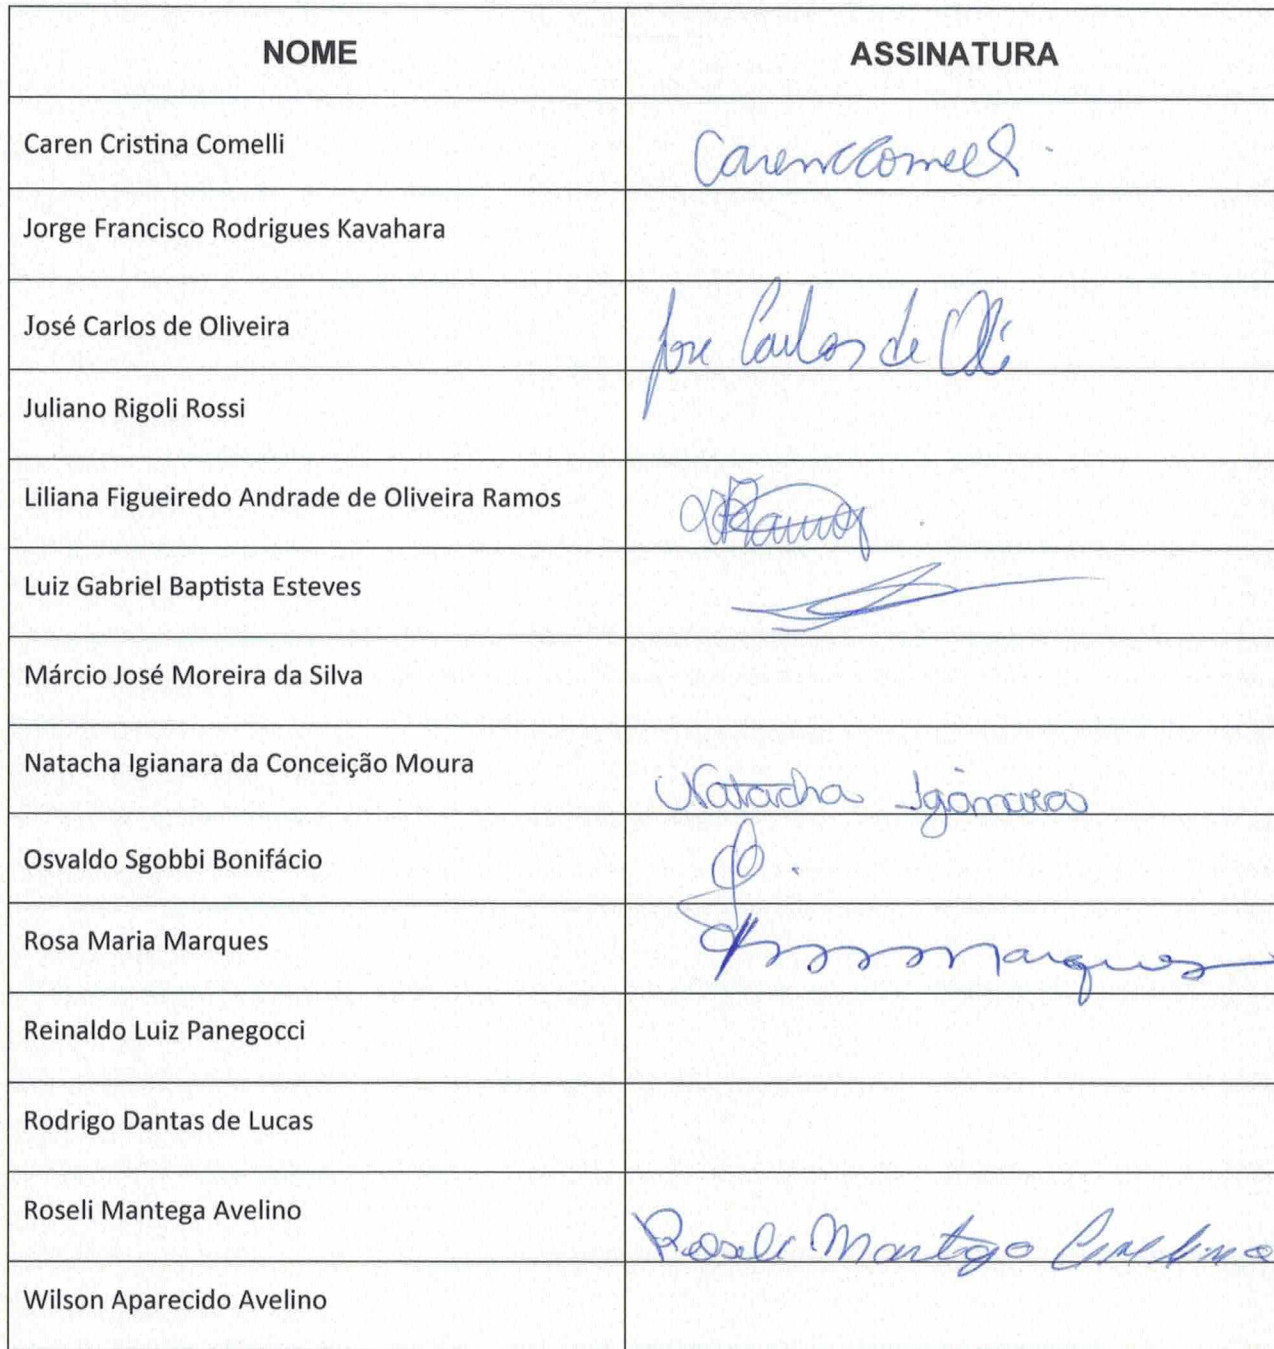 NOME ASSINATURA
Caren Cristina Comelli CarenCComelli
Jorge Francisco Rodrigues Kavahara
José Carlos de Oliveira José Carlos de Oli
Juliano Rigoli Rossi
Liliana Figueiredo Andrade de Oliveira Ramos Ramos
Luiz Gabriel Baptista Esteves
Márcio José Moreira da Silva
Natacha Igianara da Conceição Moura Natacha Igianara
Osvaldo Sgobbi Bonifácio
Rosa Maria Marques Marques
Reinaldo Luiz Panegocci
Rodrigo Dantas de Lucas
Roseli Mantega Avelino Roseli Mantega Avelino
Wilson Aparecido Avelino